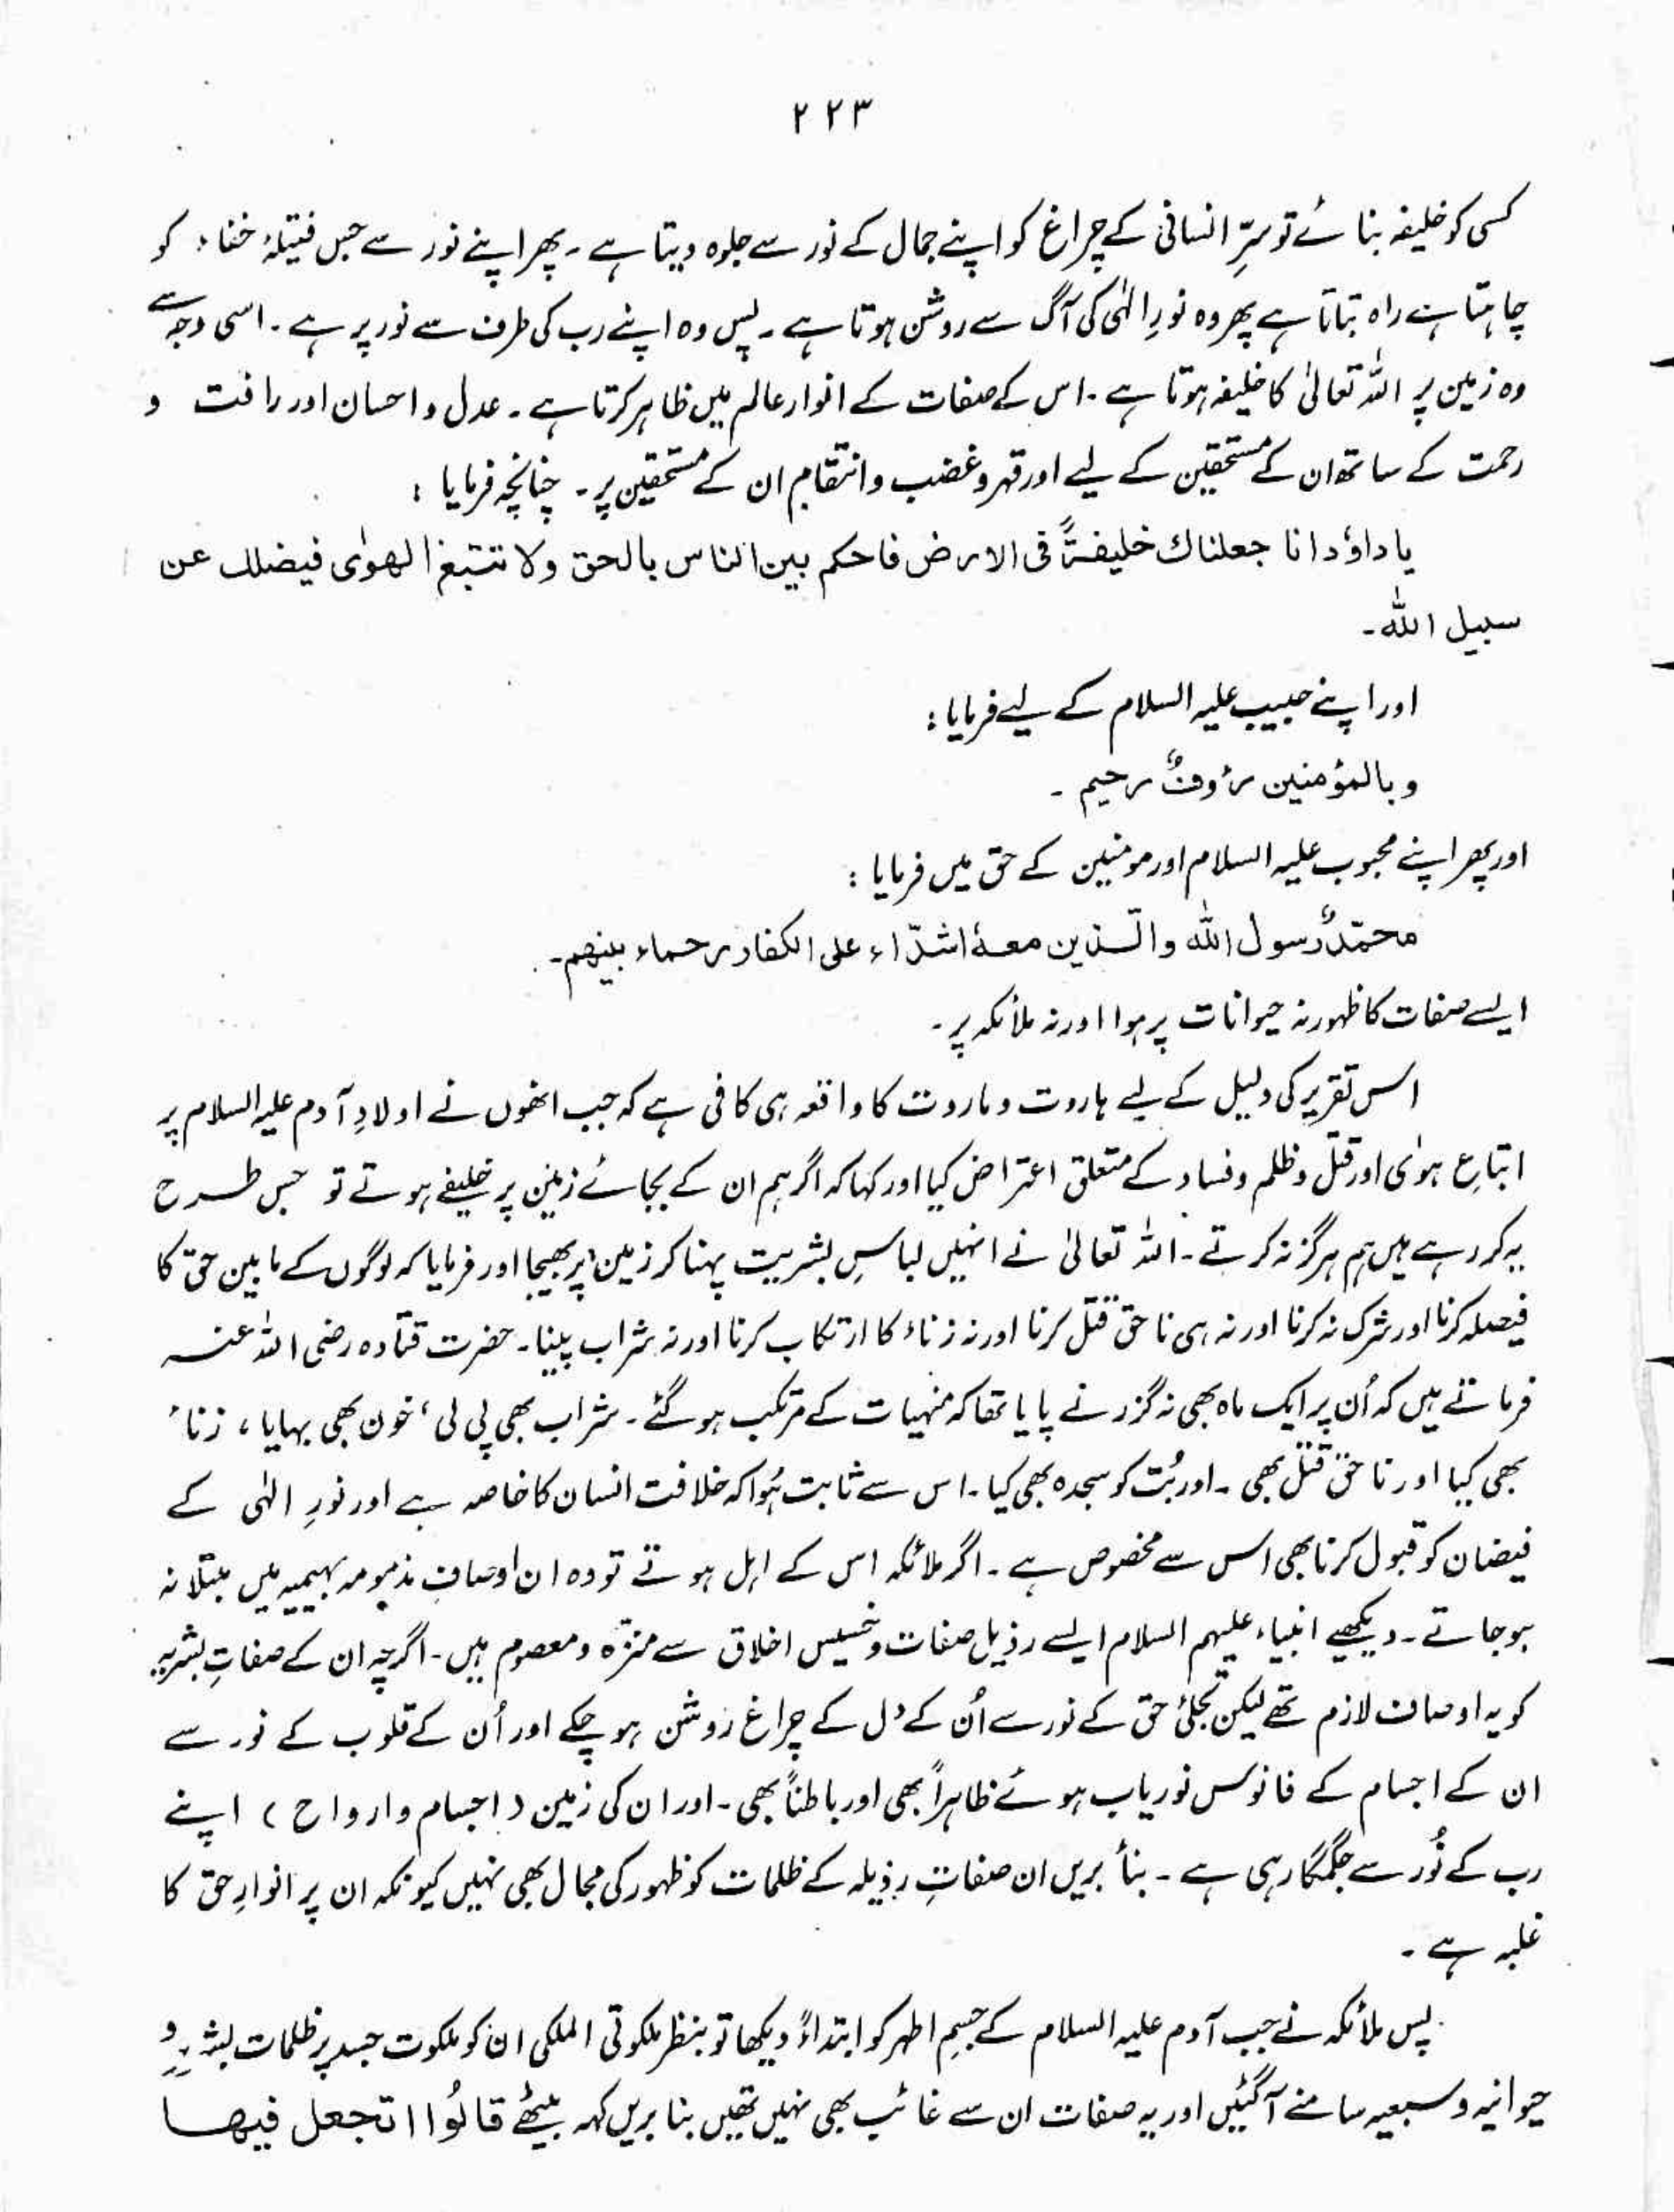 ۲۲۳
کسی کو خلیفہ بنائے تو سِرِّ انسانی کے چراغ کو اپنے جمال کے نور سے جلوہ دیتا ہے ۔ پھر اپنے نور سے جس فتیلۂ خفاء کو
چاہتا ہے راہ بتاتا ہے پھر وہ نورِ الٰہی کی آگ سے روشن ہوتا ہے ۔ پس وہ اپنے رب کی طرف سے نور پر ہے ۔ اسی وجہ سے
وہ زمین پر اللہ تعالیٰ کا خلیفہ ہوتا ہے ۔ اس کے صفات کے انوار عالم میں ظاہر کرتا ہے ۔ عدل و احسان اور رافت و
رحمت کے ساتھ ان کے مستحقین کے لیے اور قہر و غضب و انتقام ان کے مستحقین پر ۔ چنانچہ فرمایا :
یا داؤد انا جعلناك خلیفۃً فی الارض فاحکم بین الناس بالحق ولا تتبع الھوٰی فیضلك عن
سبیل اللہ ۔
اور اپنے حبیب علیہ السلام کے لیے فرمایا :
وبالمؤمنین رؤوفٌ رحیم ۔
اور پھر اپنے محبوب علیہ السلام اور مومنین کے حق میں فرمایا :
محمّدٌ رسول اللہ والّذین معہٗ اشدّاء علی الکفار رحماء بینھم ۔
ایسے صفات کا ظہور نہ حیوانات پر ہوا اور نہ ملائکہ پر ۔
اس تقریر کی دلیل کے لیے ہاروت و ماروت کا واقعہ ہی کافی ہے کہ جب انھوں نے اولادِ آدم علیہ السلام پر
اتباعِ ہوٰی اور قتل و ظلم و فساد کے متعلق اعتراض کیا اور کہا کہ اگر ہم ان کے بجائے زمین پر خلیفے ہوتے تو جس طرح
یہ کر رہے ہیں ہم ہرگز نہ کرتے ۔ اللہ تعالیٰ نے انہیں لباسِ بشریت پہنا کر زمین پر بھیجا اور فرمایا کہ لوگوں کے مابین حق کا
فیصلہ کرنا اور شرک نہ کرنا اور نہ ہی ناحق قتل کرنا اور نہ زناء کا ارتکاب کرنا اور نہ شراب پینا ۔ حضرت قتادہ رضی اللہ عنہ
فرماتے ہیں کہ اُن پر ایک ماہ بھی نہ گزرنے پایا تھا کہ منہیات کے مرتکب ہو گئے ۔ شراب بھی پی لی ، خون بھی بہایا ، زناء
بھی کیا اور ناحق قتل بھی ۔ اور بُت کو سجدہ بھی کیا ۔ اس سے ثابت ہُوا کہ خلافت انسان کا خاصہ ہے اور نورِ الٰہی کے
فیضان کو قبول کرنا بھی اس سے مخصوص ہے ۔ اگر ملائکہ اس کے اہل ہوتے تو وہ ان اوصافِ مذمومہ بہیمیہ میں مبتلا نہ
ہوجاتے ۔ دیکھیے انبیاء علیہم السلام ایسے رذیل صفات و خسیس اخلاق سے منزّہ و معصوم ہیں ۔ اگرچہ ان کے صفاتِ بشریہ
کو یہ اوصاف لازم تھے لیکن تجلئ حق کے نور سے اُن کے دل کے چراغ روشن ہو چکے اور اُن کے قلوب کے نور سے
ان کے اجسام کے فانوس نوریاب ہوئے ظاہراً بھی اور باطناً بھی ۔ اور ان کی زمین ( اجسام و ارواح ) اپنے
رب کے نُور سے جگمگا رہی ہے ۔ بنأ بریں ان صفاتِ رذیلہ کے ظلمات کو ظہور کی مجال بھی نہیں کیونکہ ان پر انوارِ حق کا
غلبہ ہے ۔
پس ملائکہ نے جب آدم علیہ السلام کے جسمِ اطہر کو ابتداءً دیکھا تو بنظر ملکوتی الملکی ان کو ملکوت جسد پر ظلمات بشریہ و
حیوانیہ و سبعیہ سامنے آگئیں اور یہ صفات ان سے غائب بھی نہیں تھیں بنا بریں کہہ بیٹھے قالُوا اتجعل فیھا